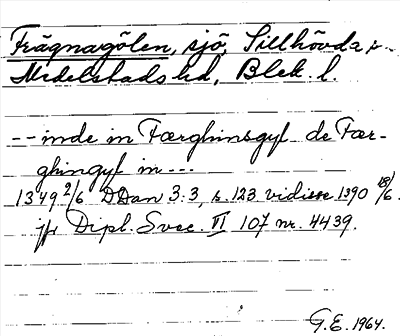 Frägnagölen, sjö, Sillhövda s.
Medelstads hd, Blek. l.
-- inde in Færghinsgyl de Fær-
ghingyl in ---
1349 2/6 DDan 3:3, s. 123 vidisse 1390 18/6.
jfr Dipl. Svec. VI 107 nr. 4439.
G.E. 1964.